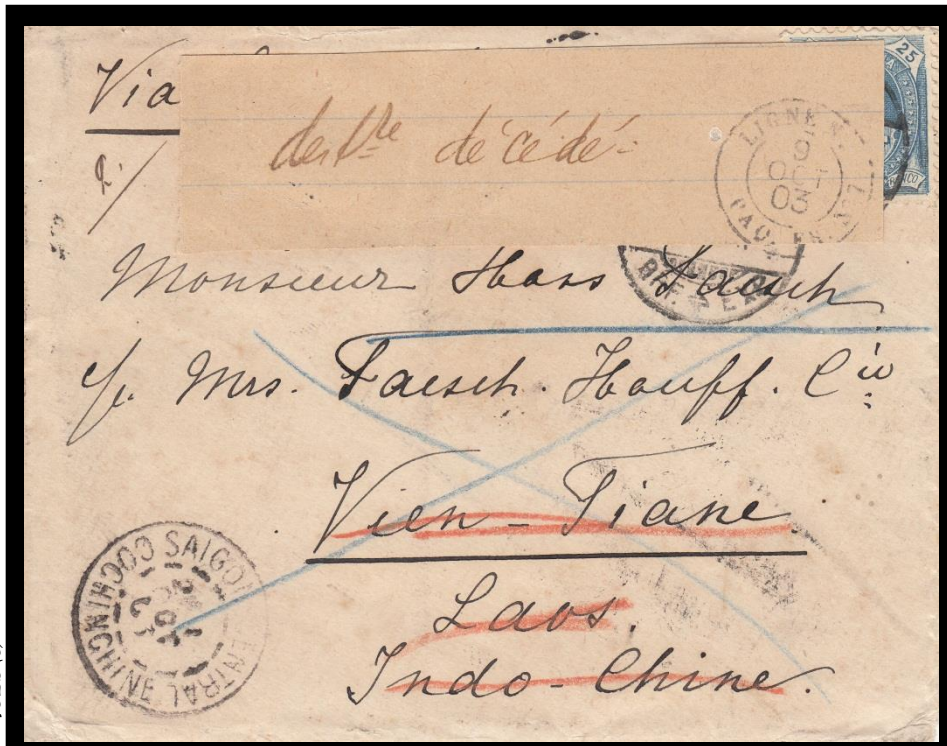 Via
dest^re décédé-
25
LIGNE N.
9
OCT
03
PAQ. FR. N°7
Monsieur Hans Faesch
c/o Mrs. Faesch. Hauff. Cie
Vien-Tiane.
Laos.
Indo-Chine.
SAIGON CENTRAL
COCHINCHINE